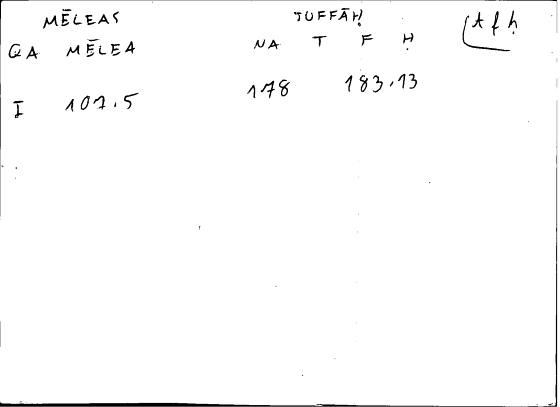 MĒLEAS TUFFĀḤ t f ḥ
GA MĒLEA NA T F Ḥ
I 107.5 178 183.13